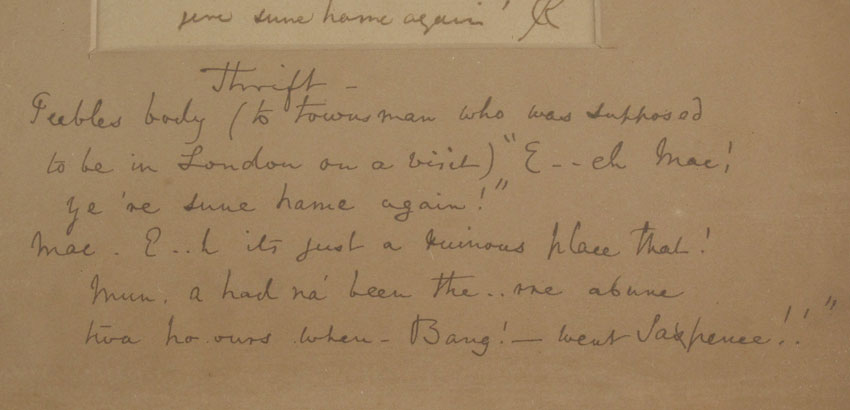 yere sune hame again!" CK
Thrift -
Peebles body (to townsman who was supposed
to be in London on a visit) "E--eh Mac!
ye 're sune hame again!"
Mac. E..h its just a ruinous place that!
Mun. a had na' been the..rre abune
twa ho.ours when - Bang! — went Saxpence!!"